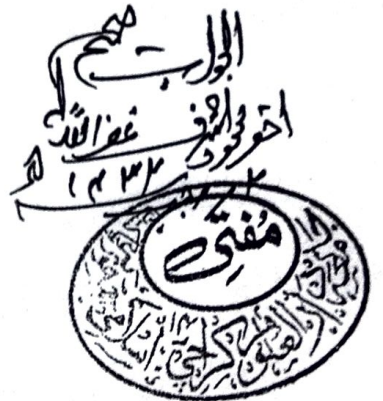 الجواب صحیح
احقر محمود اشرف غفر اللہ لہ
۱۴۳۳ھ
مفتی
جامعہ دارالعلوم کراچی